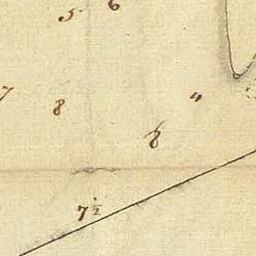 5 6
7 8 4
8
7½